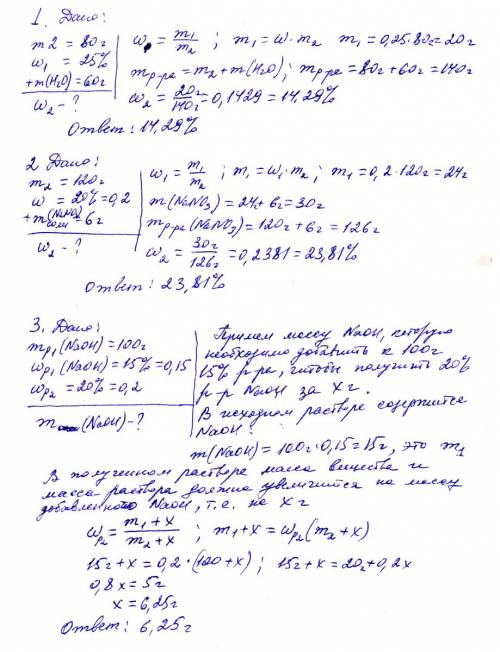 1. Дано:
m2 = 80г
ω1 = 25%
+m(H2O) = 60г
ω2 - ?
ω = m1/m2 ; m1 = ω·m2 m1 = 0,25·80г = 20г
mр-ра = m2 + m(H2O); mр-ра = 80г + 60г = 140г
ω2 = 20г/140г = 0,1429 = 14,29%
Ответ: 14,29%
2 Дано:
m2 = 120г
ω = 20% = 0,2
+m соли (NaNO3) = 6г
ω2 - ?
ω1 = m1/m2 ; m1 = ω1·m2 ; m1 = 0,2·120г = 24г
m(NaNO3) = 24 + 6г = 30г
mр-ра (NaNO3) = 120г + 6г = 126г
ω2 = 30г/126г = 0,2381 = 23,81%
Ответ: 23,81%
3. Дано:
mр1 (NaOH) = 100г
ωр1 (NaOH) = 15% = 0,15
ωр2 = 20% = 0,2
m (NaOH) - ?
Примем массу NaOH, которую
необходимо добавить к 100г
15% р-ра, чтобы получить 20%
р-р NaOH за Xг.
В исходном растворе содержится
NaOH:
m(NaOH) = 100г·0,15 = 15г, это m1
В полученном растворе масса вещества и
масса раствора должна увеличится на массу
добавленного NaOH, т.е. на Xг
ωр2 = m1 + X/m2 + X ; m1 + X = ωр2 (m2 + X)
15г + X = 0,2·(100 + X) ; 15г + X = 20г + 0,2X
0,8X = 5г
X = 6,25г
Ответ: 6,25г